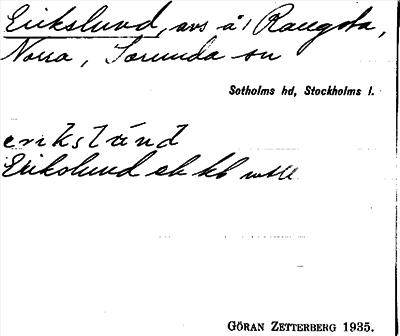 Erikslund, avs å 1 Rangsta,
Norra, Sorunda sn
Sotholms hd, Stockholms l.
erikslúnd
Erikslund ek kb
GÖRAN ZETTERBERG 1935.